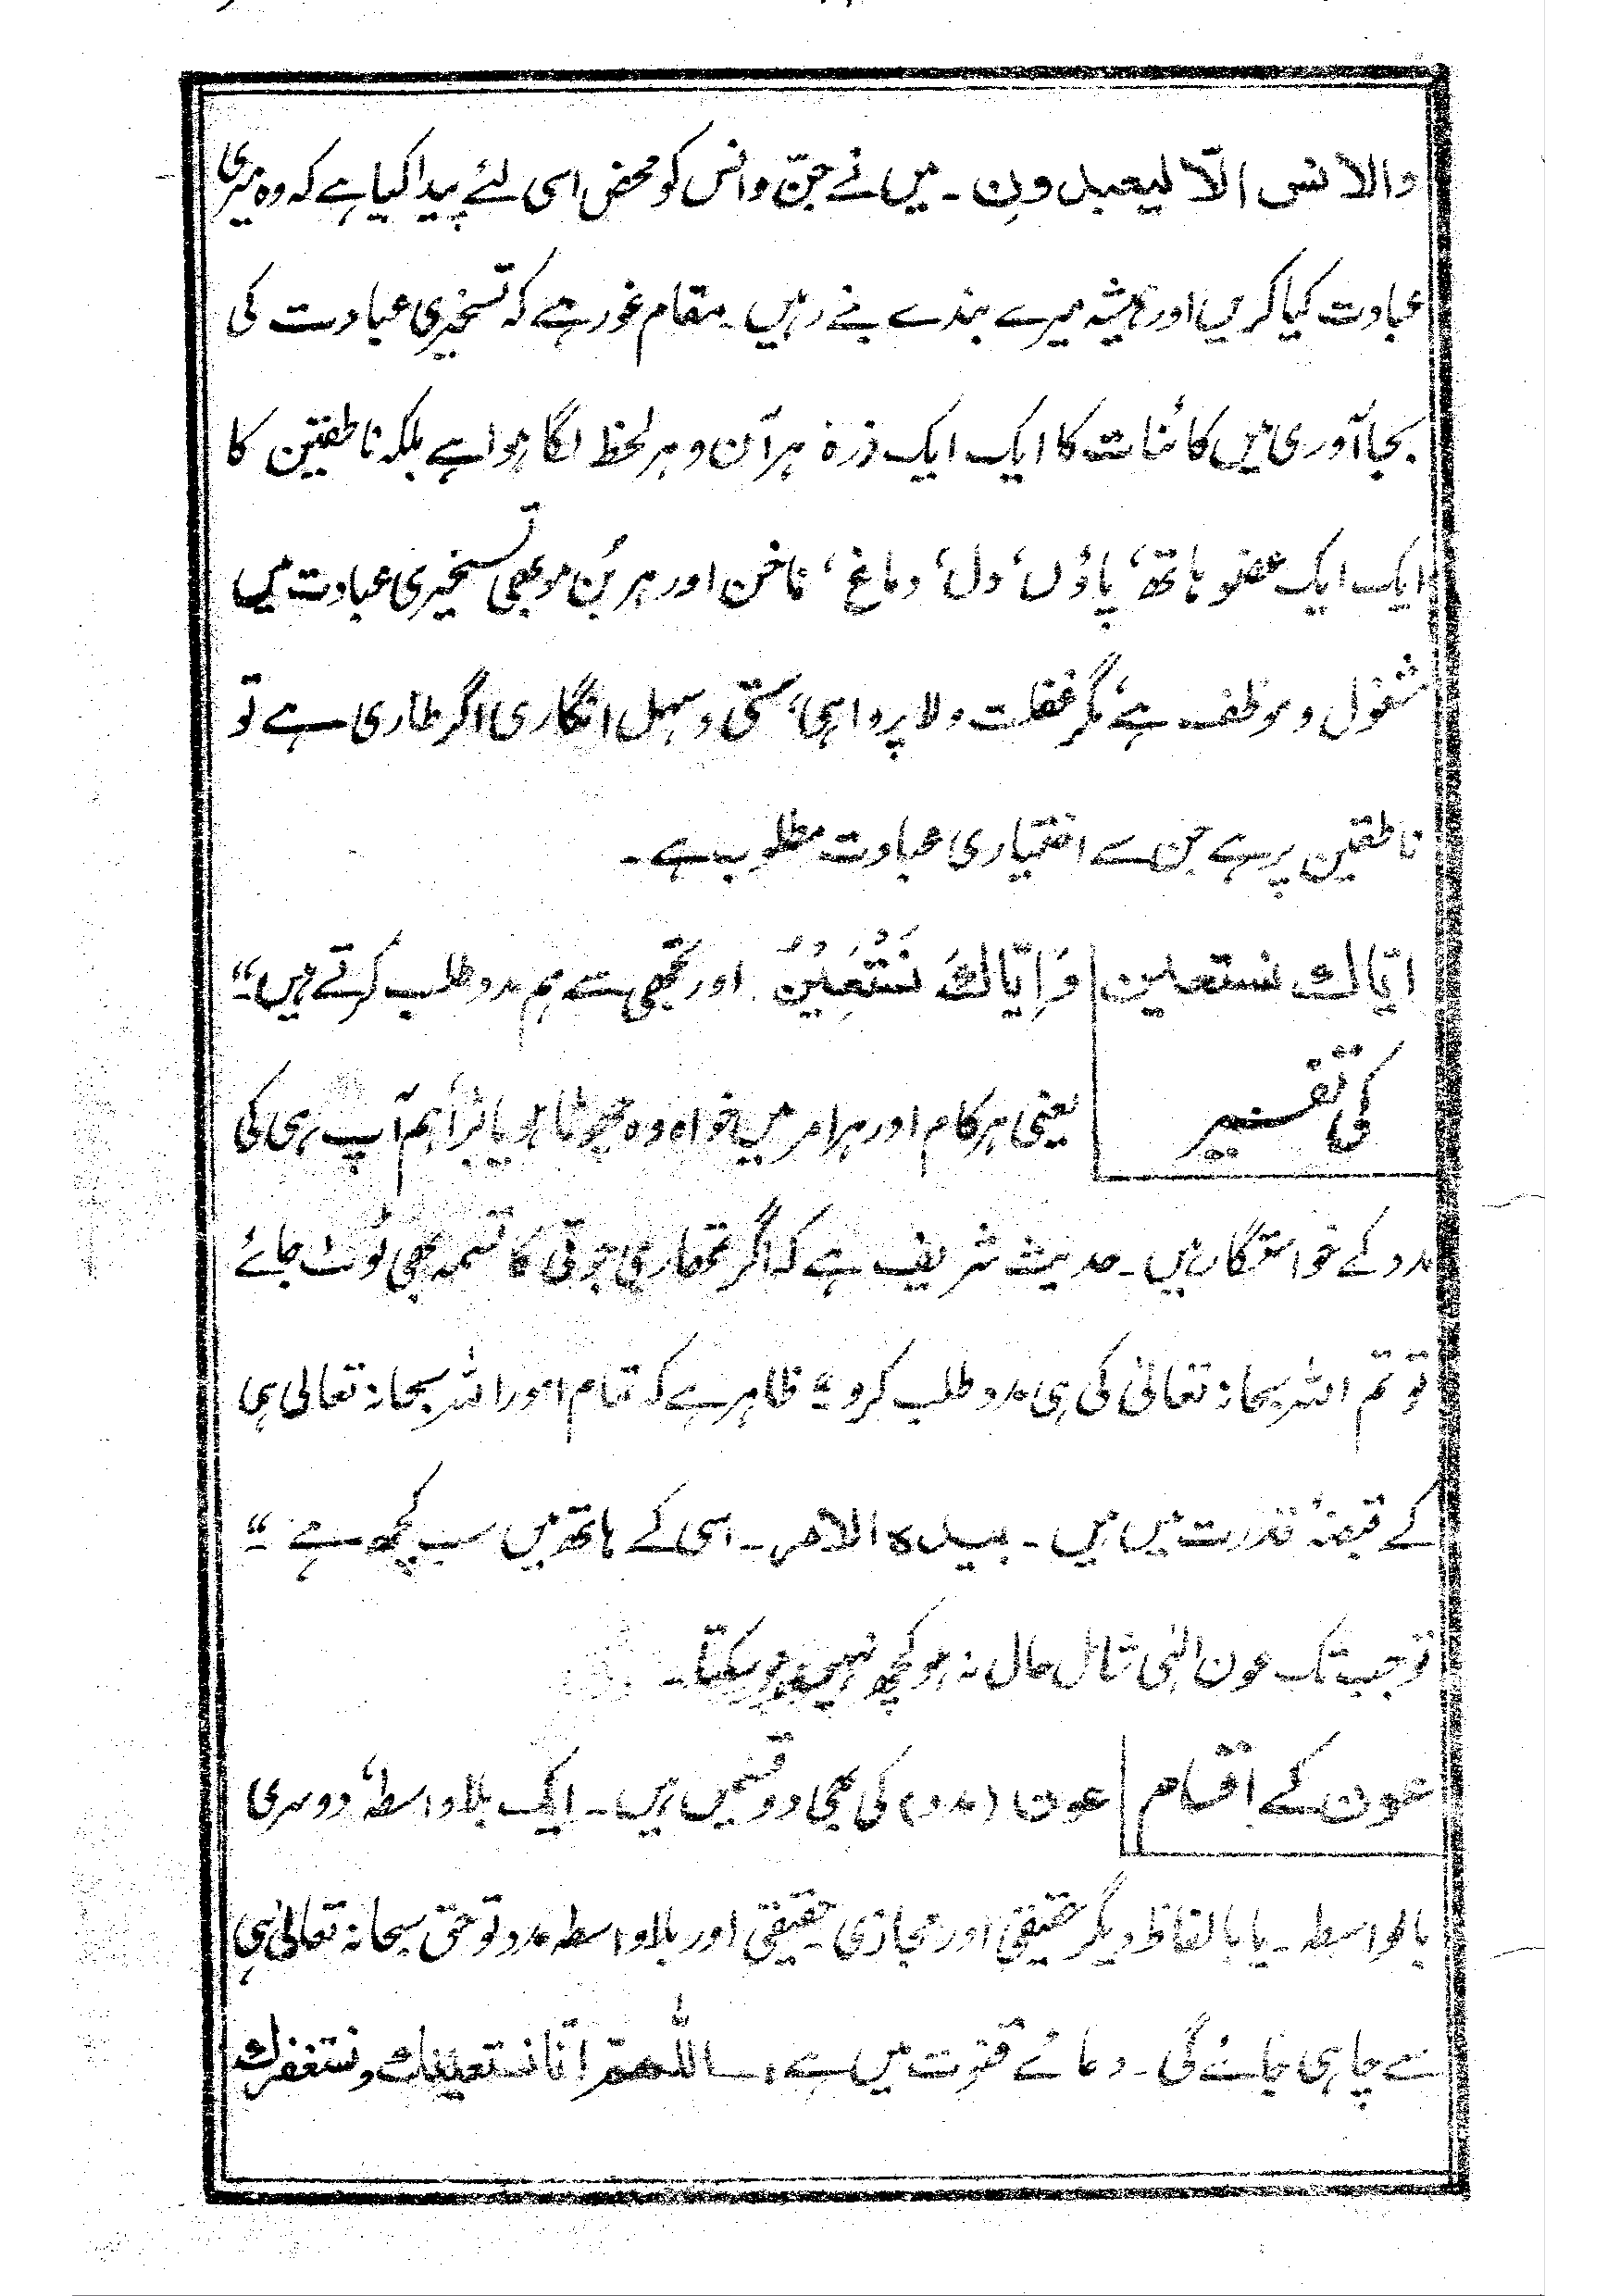 والانس الّا لیعبدونِ ۔ میں نے جنّ و انس کو محض اسی لئے پیدا کیا ہے کہ وہ میری
عبادت کیا کریں اور ہمیشہ میرے بندے بنے رہیں۔ مقام غور ہے کہ تسخیری عبادت کی
بجا آوری میں کائنات کا ایک ایک ذرہ ہر آن و ہر لحظہ لگا ہوا ہے بلکہ ناطقین کا
ایک ایک عضو ہاتھ، پاؤں، دل، دماغ، ناخن اور ہر بُن مو بھی تسخیری عبادت میں
مشغول و موظف ہے، مگر غفلت و لاپرواہی، سستی و سہل انگاری اگر طاری ہے تو
ناطقین پر ہے جن سے اختیاری عبادت مطلوب ہے۔
ایّاک نستعین وَاِیّاکَ نَسْتَعِیْنُ اور تجھی سے ہم مدد طلب کرتے ہیں۔“
کی تفسیر یعنی ہر کام اور ہر امر میں خواہ وہ چھوٹا ہو یا بڑا ہم آپ ہی کی
مدد کے خواستگار ہیں۔ حدیث شریف ہے کہ اگر تمھاری جوتی کا تسمہ بھی ٹوٹ جائے
تو تم اللہ سبحانہ تعالیٰ کی ہی مدد طلب کرو۔“ ظاہر ہے کہ تمام امور اللہ سبحانہ تعالیٰ ہی
کے قبضۂ قدرت میں ہیں۔ بیدہ الامر۔ اسی کے ہاتھ میں سب کچھ ہے ۔“
تو جب تک عون الٰہی شامل حال نہ ہو کچھ نہیں ہو سکتا۔
عون کے اقسام عون (مدد) کی بھی دو قسمیں ہیں۔ ایک بلاواسطہ، دوسری
بالواسطہ۔ یا بالفاظ دیگر حقیقی اور مجازی۔ حقیقی اور بلاواسطہ مدد تو حق سبحانہ تعالیٰ ہی
سے چاہی جائے گی۔ دعائے قنوت میں ہے: اللّٰھمّ انّا نستعینك ونستغفرك